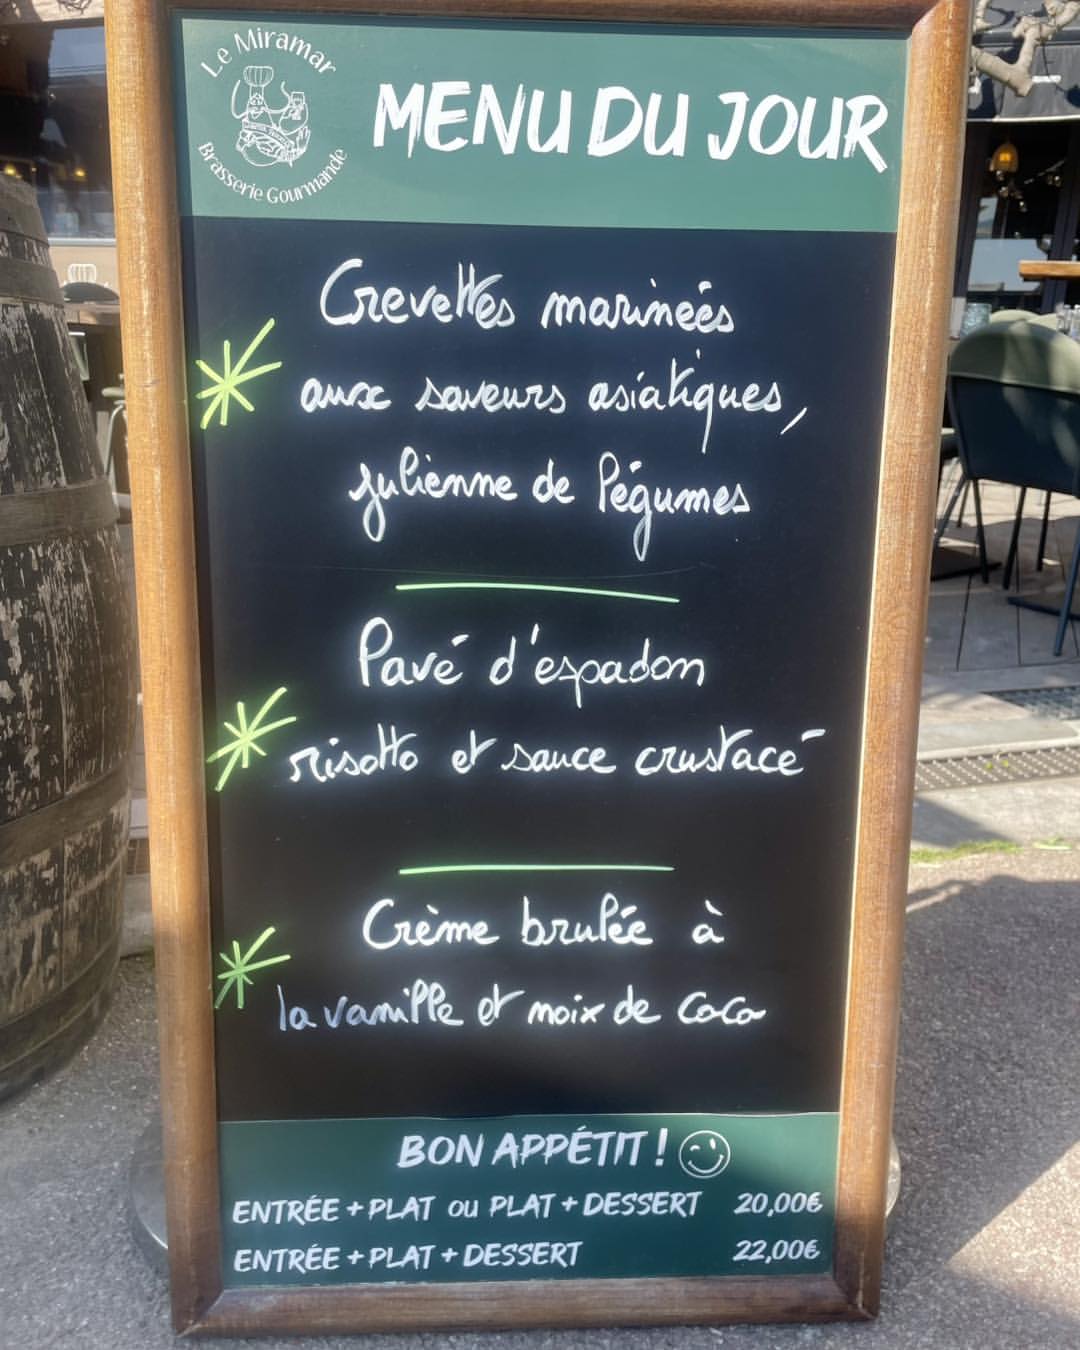 Le Miramar
Brasserie Gourmande
MENU DU JOUR
Crevettes marinées
aux saveurs asiatiques,
julienne de légumes
Pavé d'espadon
risotto et sauce crustacé
Crème brulée à
la vanille et noix de coco
BON APPÉTIT !
ENTRÉE + PLAT OU PLAT + DESSERT 20,00€
ENTRÉE + PLAT + DESSERT 22,00€